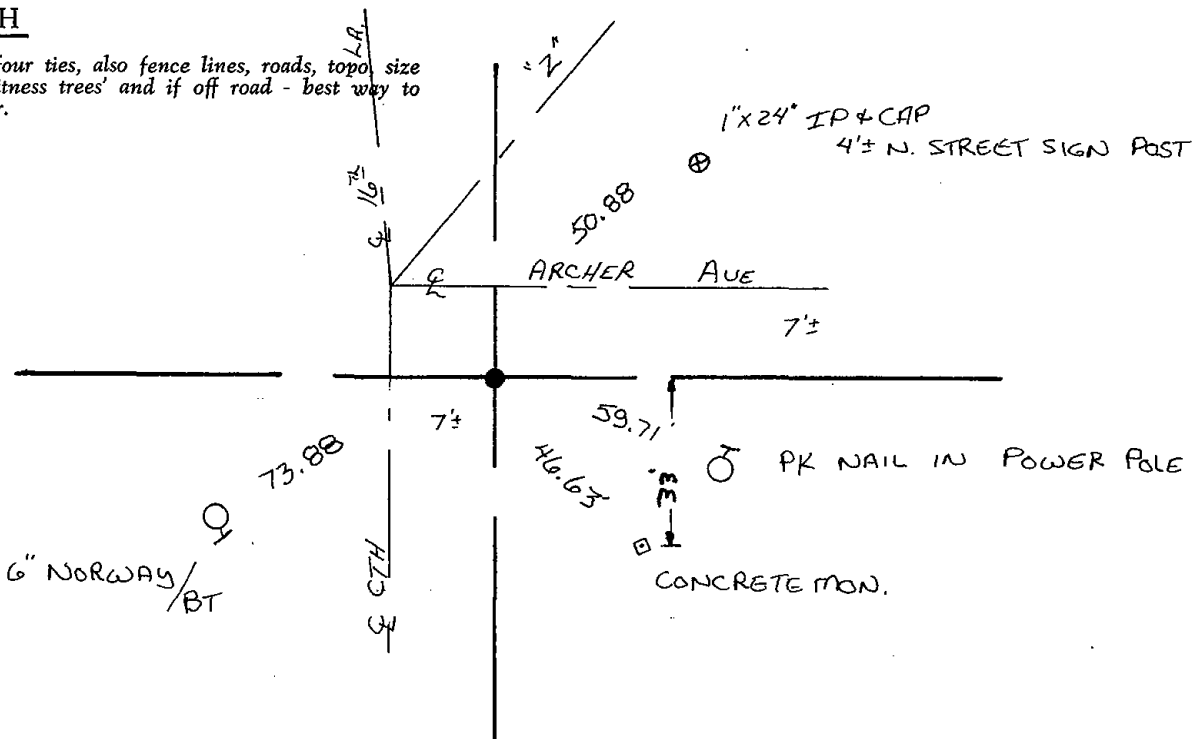 H
four ties, also fence lines, roads, topo, size
itness trees' and if off road - best way to
r.
LA.
"Z"
1"x24" IP & CAP
4'± N. STREET SIGN POST
℄ 16TH
50.88
℄ ARCHER AVE
7'±
7'±
59.71'
73.88
46.63'
33'
PK NAIL IN POWER POLE
6" NORWAY/BT
℄ CTH
CONCRETE MON.